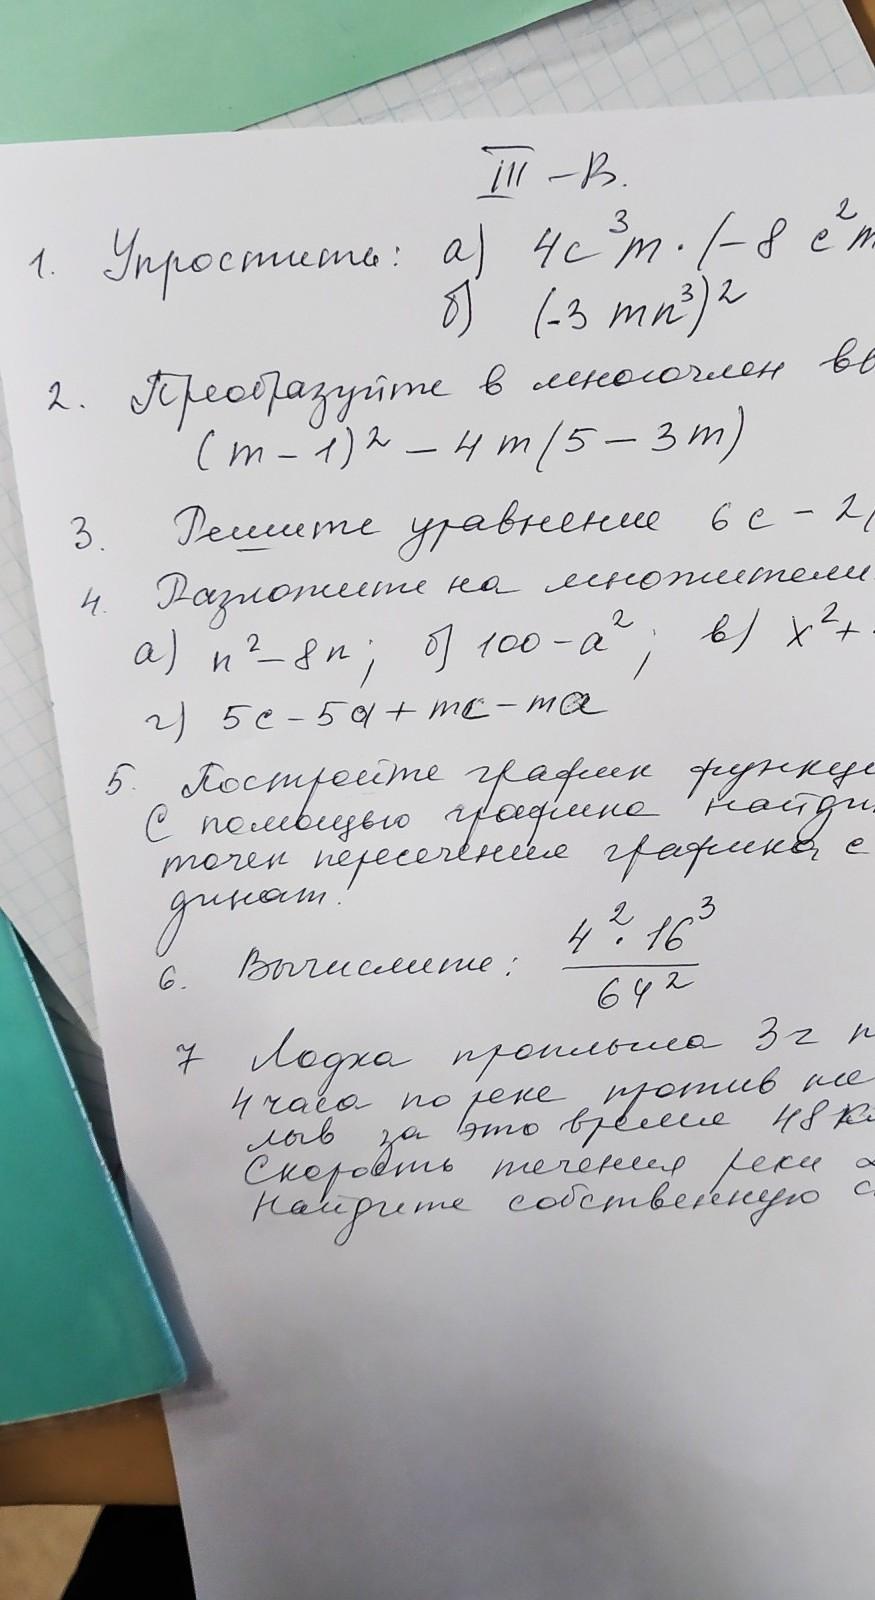 III – В.
1. Упростить: а) 4c³m · (-8 c²m
б) (-3 mn³)²
2. Преобразуйте в многочлен
(m – 1)² – 4m(5 – 3m)
3. Решите уравнение 6с – 2(
4. Разложите на множители
а) n² – 8n; б) 100 – a²; в) x² +
г) 5c – 5a + mc – ma
5. Постройте график функци
С помощью графика найди
точек пересечения графика с
динат.
6. Вычислите: 4² · 16³
64²
7 Лодка проплыла 3г
4 часа по реке против
лыв за это время 48 км
Скорость течения реки
Найдите собственную